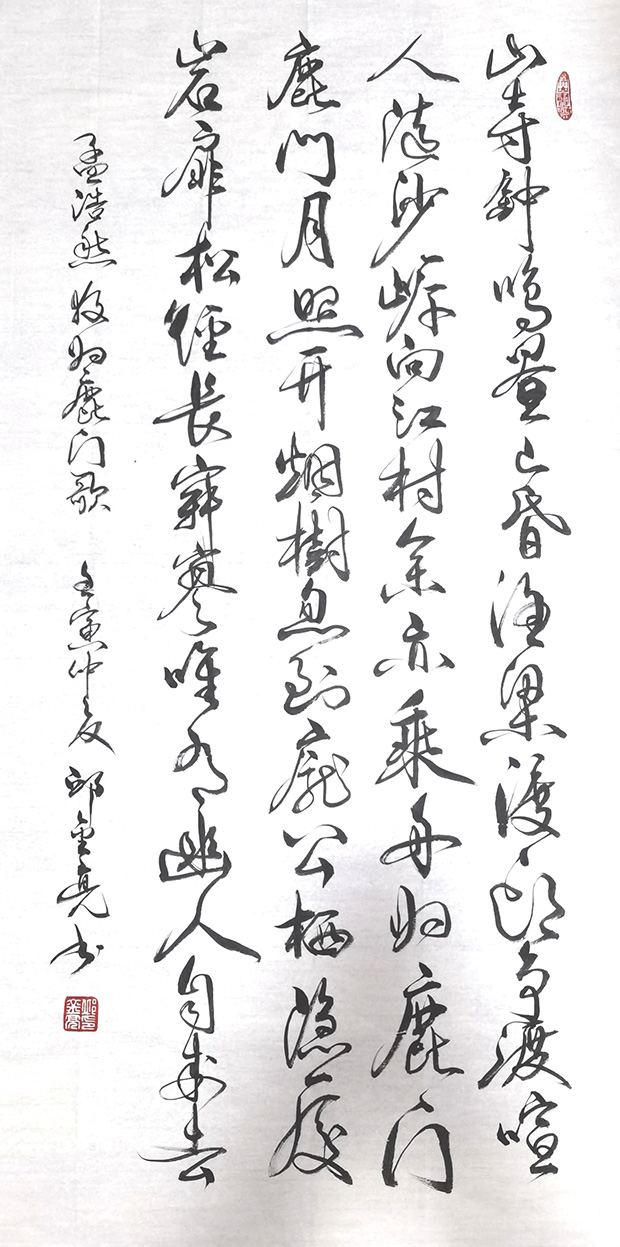 山寺鈡鸣昼已昏渔梁渡头争渡喧
人随沙岸向江村余亦乘舟归鹿门
鹿门月照开烟樹忽到庞公栖隐处
岩扉松径长寂寥唯有幽人自来去
孟浩然 夜归鹿门歌 壬寅仲夏 邱金亮书